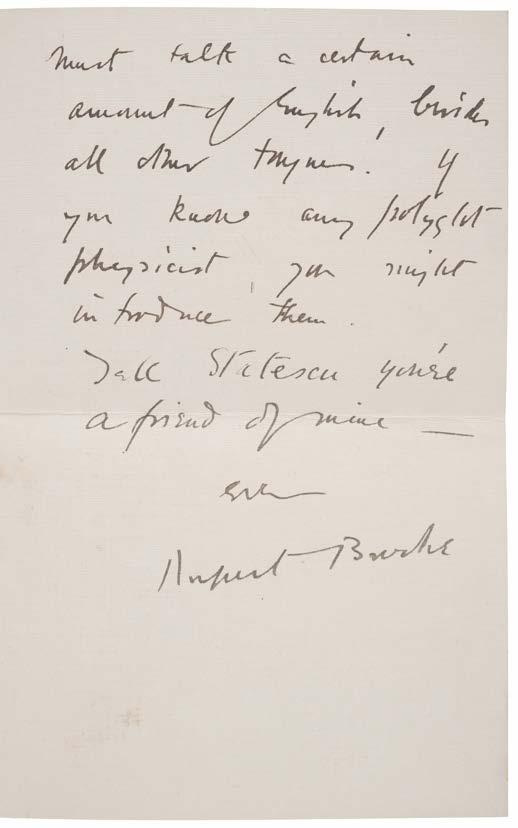 must talk a certain
amount of English, besides
all other tongues. If
you know any polyglot
physicist, you might
introduce them.
Tell Statescu you're
a friend of mine —
ever
Rupert Brooke